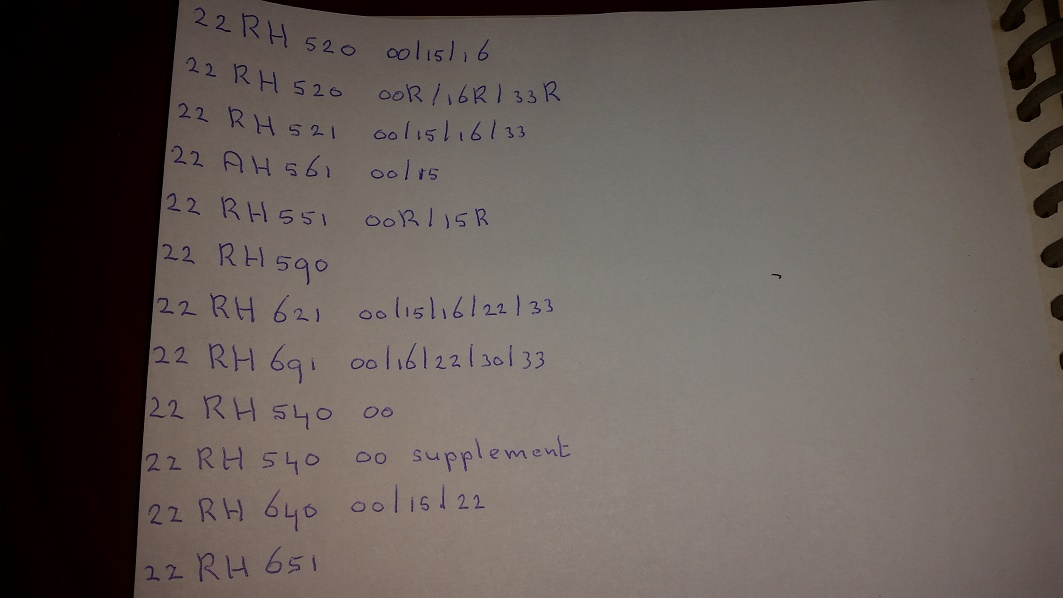 22 RH 520 00/15/16
22 RH 520 00R/16R/33R
22 RH 521 00/15/16/33
22 AH 561 00/15
22 RH 551 00R/15R
22 RH 590
22 RH 621 00/15/16/22/33
22 RH 691 00/16/22/30/33
22 RH 540 00
22 RH 540 00 supplement
22 RH 640 00/15/22
22 RH 651